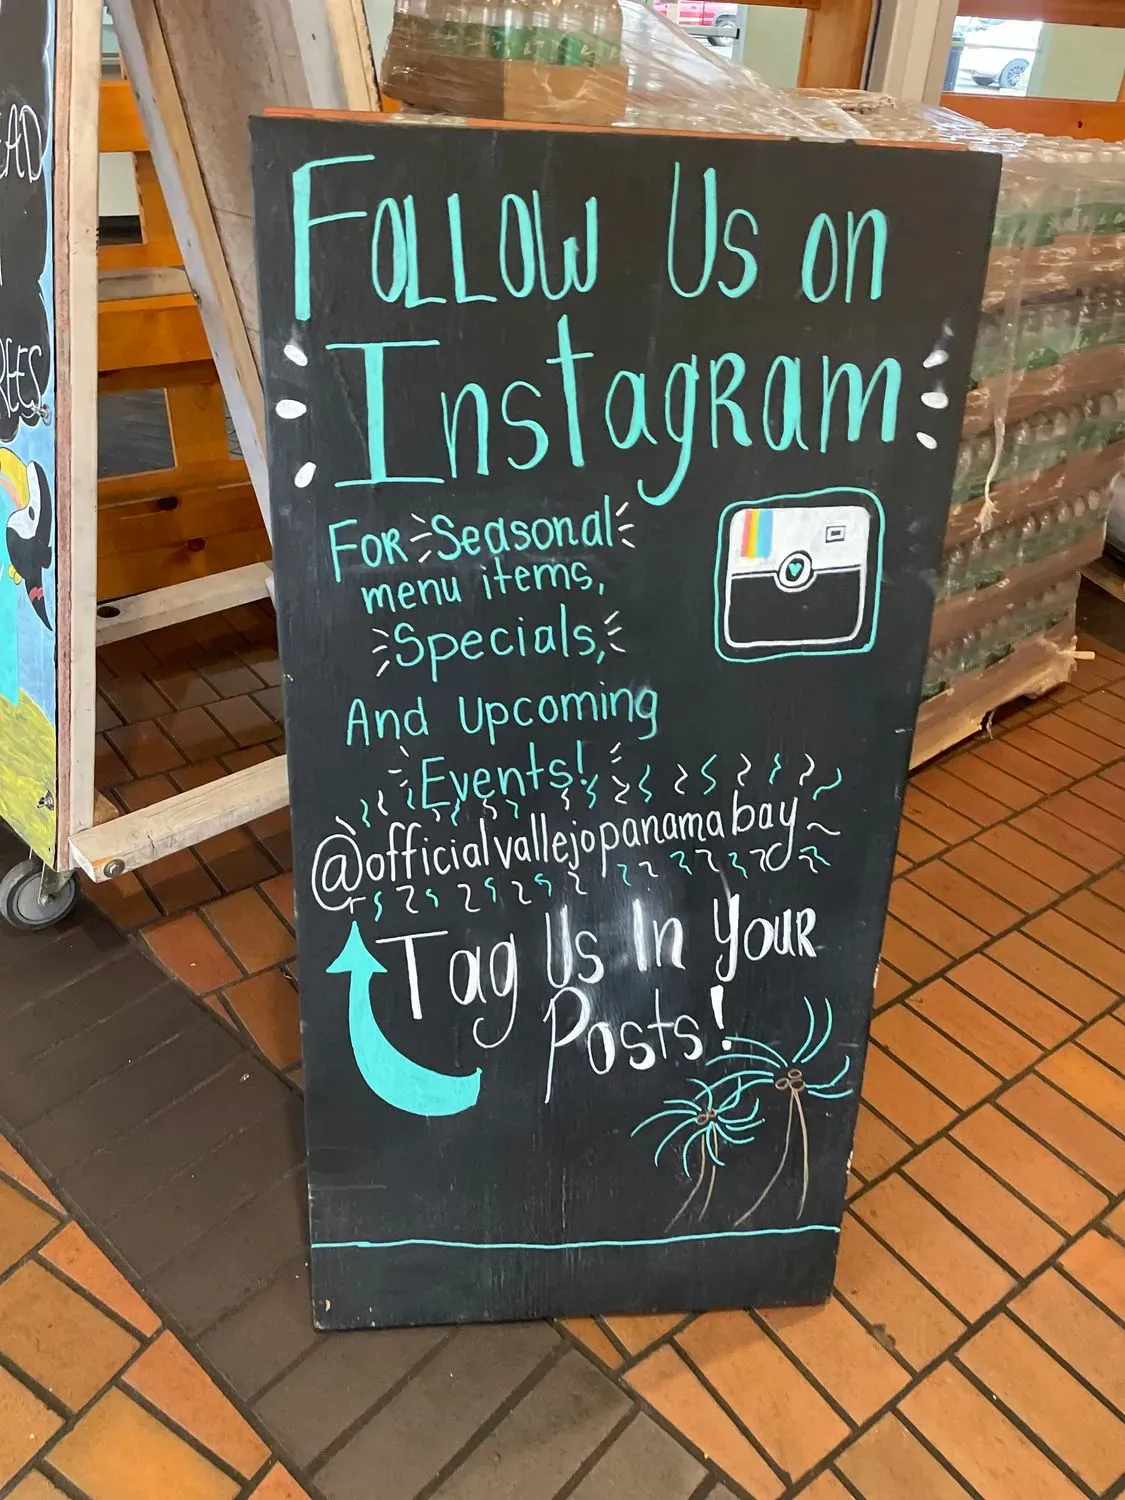 Follow Us on
Instagram
For Seasonal
menu items,
Specials,
And Upcoming
Events!
@officialvallejopanamabay
Tag Us In Your
Posts!